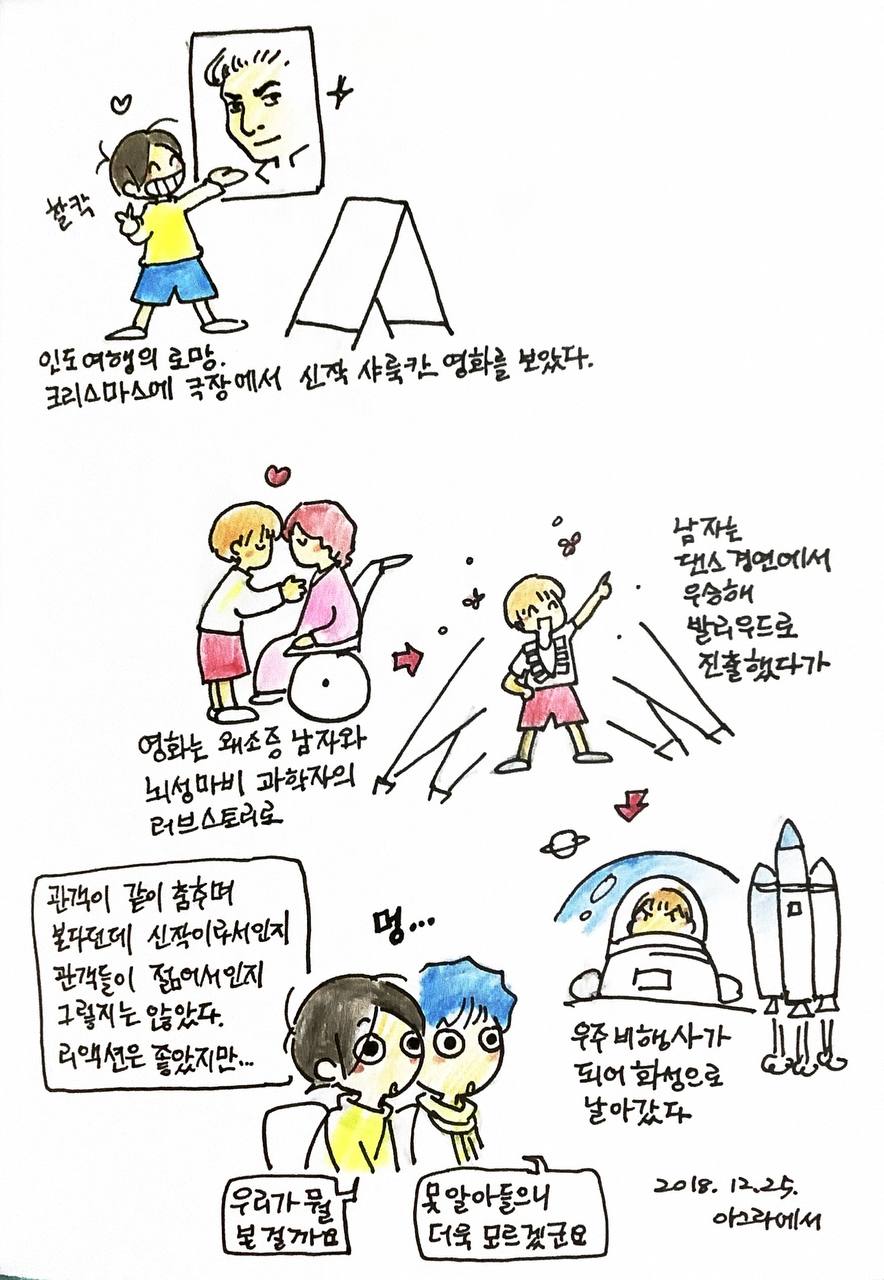 찰칵
인도여행의 로망.
크리스마스에 극장에서 신작 샤룩칸 영화를 보았다.
영화는 왜소증 남자와
뇌성마비 과학자의
러브스토리로
남자는
댄스경연에서
우승해
발리우드로
진출했다가
우주비행사가
되어 화성으로
날아갔다
관객이 같이 춤추며
본다던데 신작이라서인지
관객들이 젊어서인지
그렇지는 않았다.
리액션은 좋았지만...
멍...
우리가 뭘
본 걸까요
못 알아들으니
더욱 모르겠군요
2018. 12.25.
아그라에서